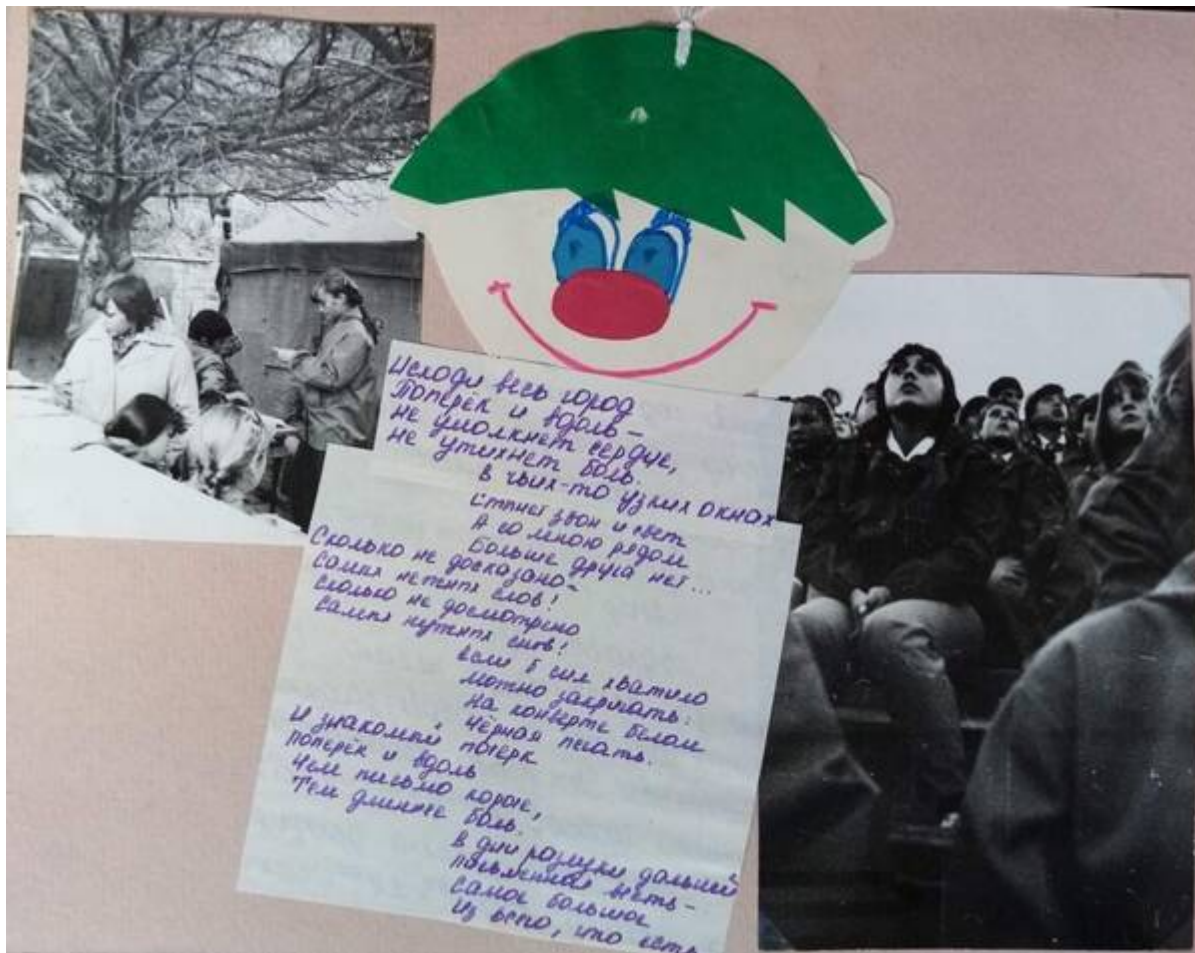 Исходи весь город
Поперек и вдоль –
не умолкнет сердце,
не утихнет боль.
В чьих-то узких окнах
стынет звон и свет
А со мною рядом
Больше друга нет...
Сколько не досказано –
самых нежных слов!
Сколько не досмотрено
самых нужных снов!
если б сил хватило
можно закричать:
На конверте белом
чёрная печать.
И знакомый почерк
поперек и вдоль
Чем письмо короче,
Тем длиннее боль.
В дни разлуки дальней
письменная весть –
самое большое
Из всего, что есть